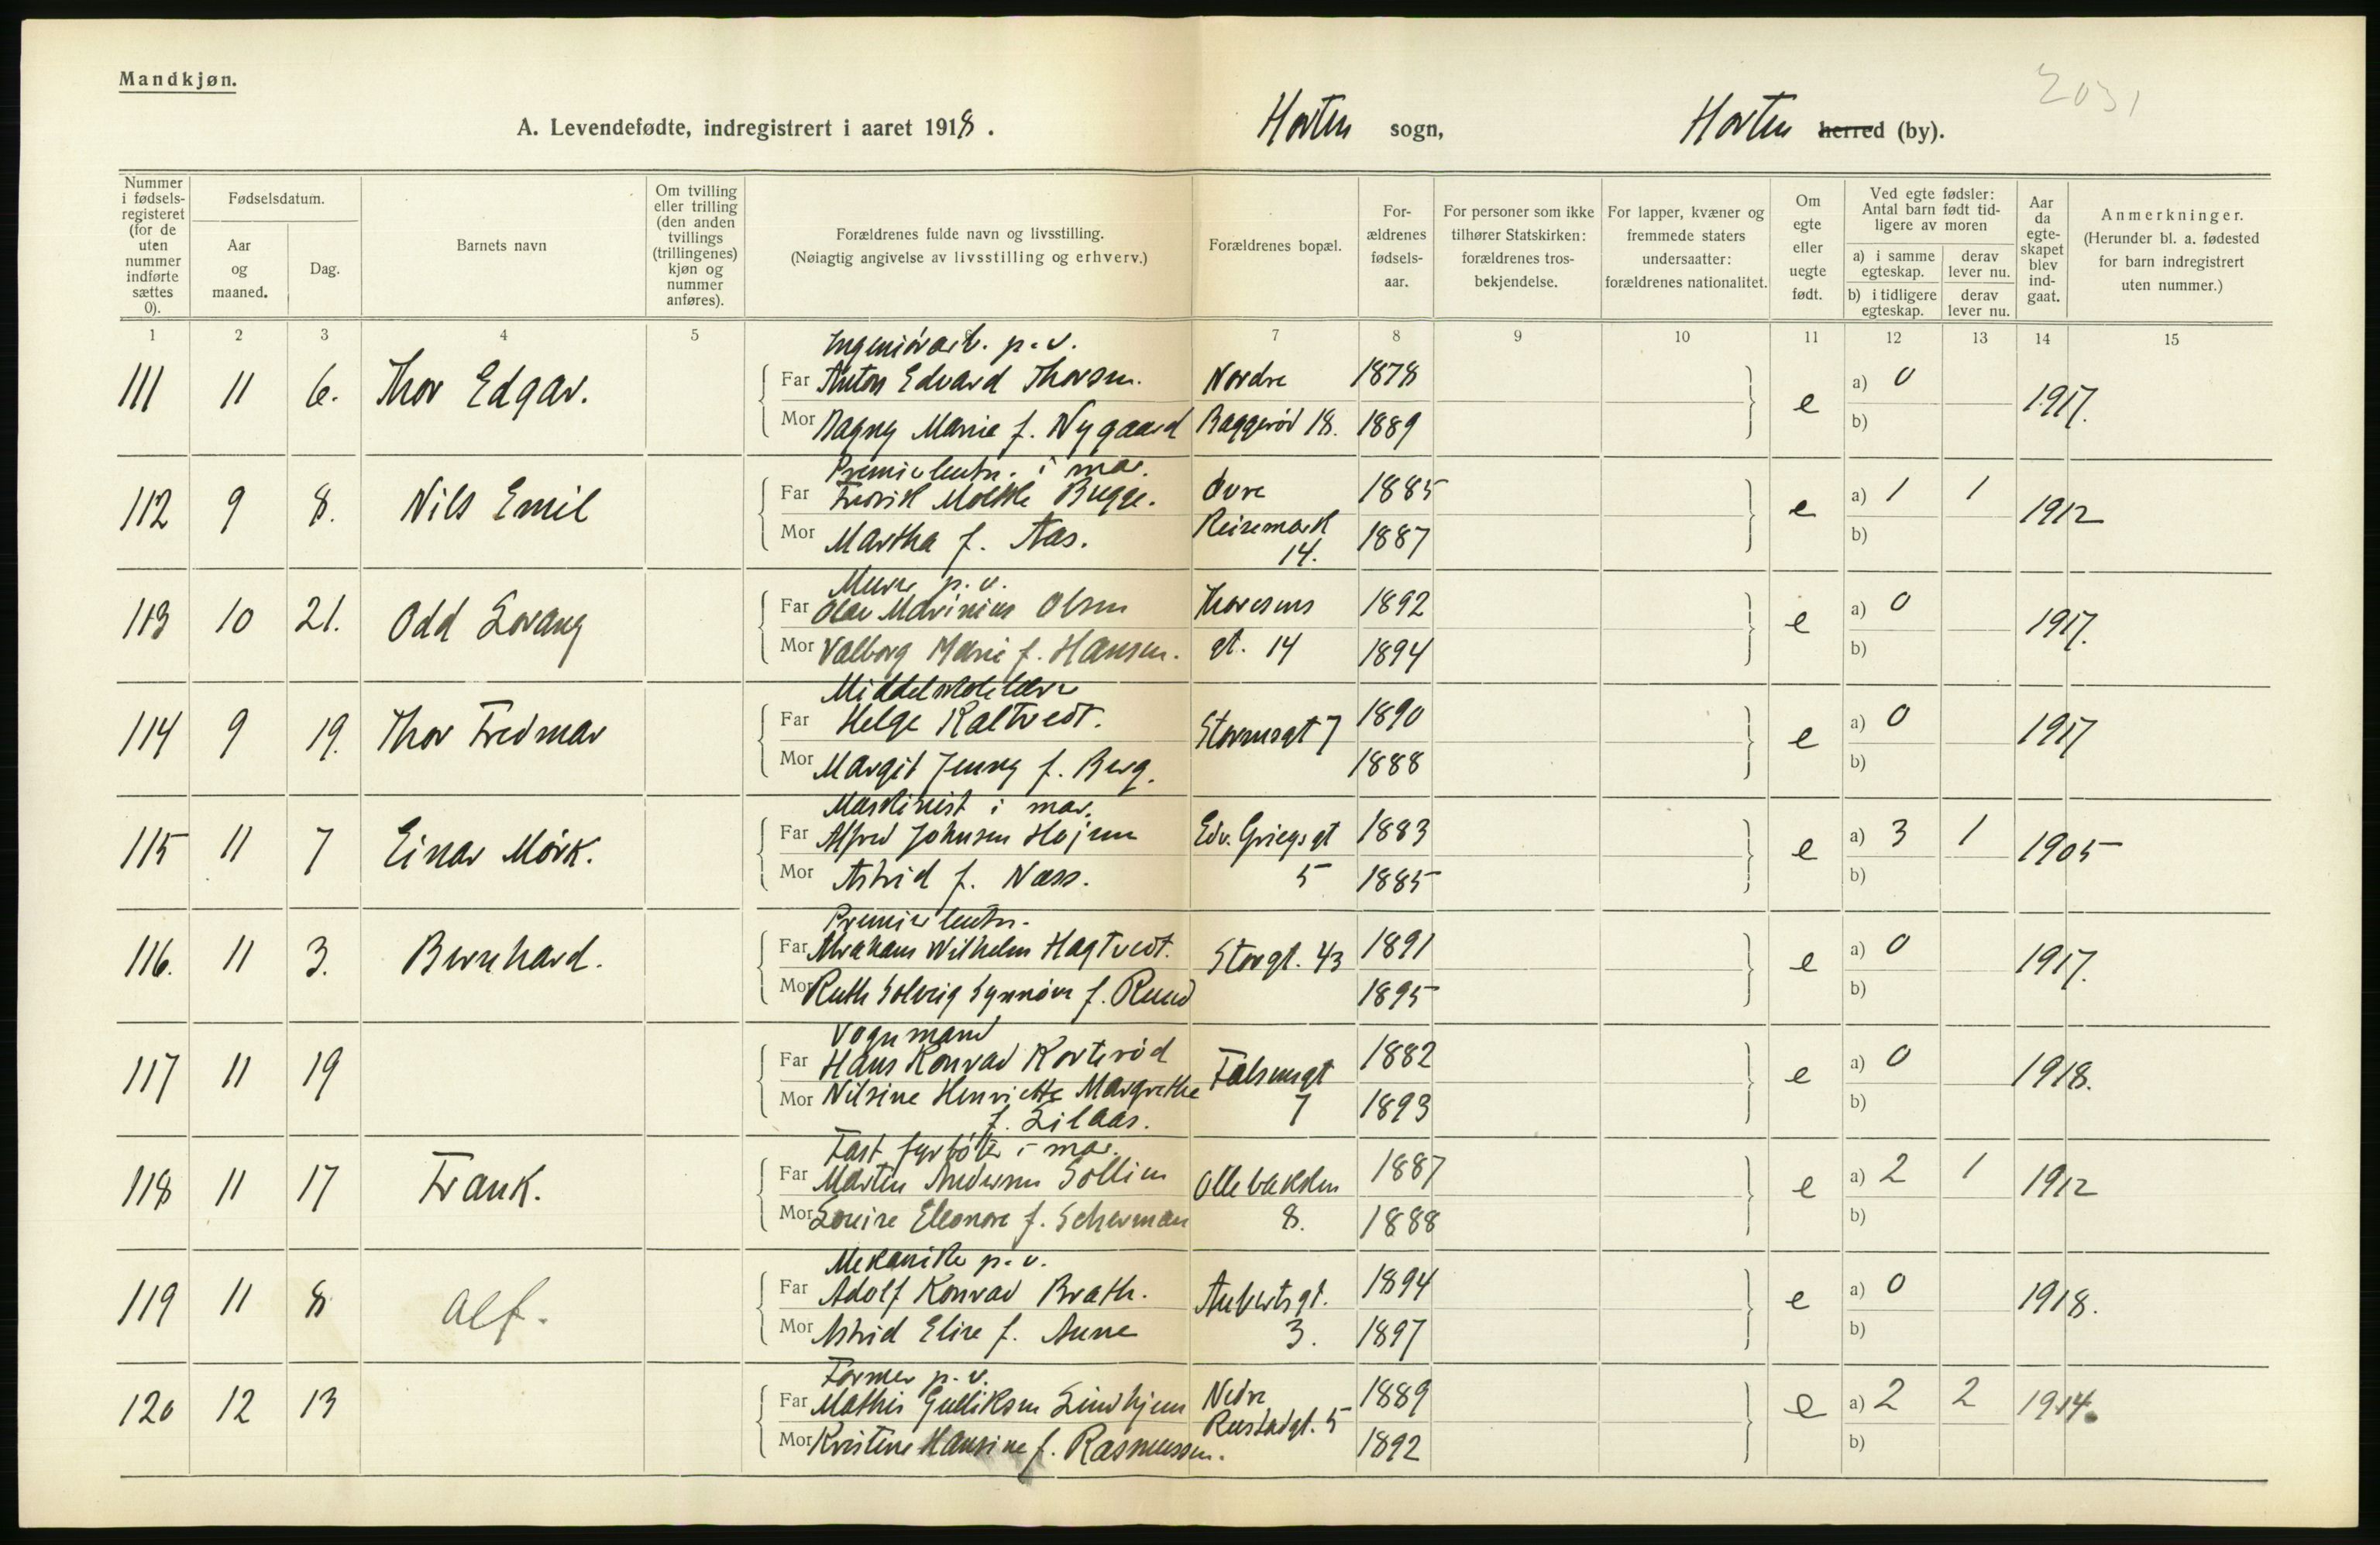 Mandkjøn.
2031
A. Levendefødte, indregistrert i aaret 1918. Horten sogn, Horten herred (by).
Nummer i fødselsregisteret (for de uten nummer indførte sættes 0).
Fødselsdatum.
Aar og maaned.
Dag.
Barnets navn
Om tvilling eller trilling (den anden tvillings (trillingenes) kjøn og nummer anføres).
Forældrenes fulde navn og livsstilling.
(Nøiagtig angivelse av livsstilling og erhverv.)
Forældrenes bopæl.
For-ældrenes fødsels-aar.
For personer som ikke tilhører Statskirken: forældrenes tros-bekjendelse.
For lapper, kvæner og fremmede staters undersaatter: forældrenes nationalitet.
Om egte eller uegte født.
Ved egte fødsler: Antal barn født tid-ligere av moren
a) i samme egteskap.
derav lever nu.
b) i tidligere egteskap.
derav lever nu.
Aar da egte-skapet blev ind-gaat.
Anmerkninger.
(Herunder bl. a. fødested for barn indregistrert uten nummer.)
1 2 3 4 5 6 7 8 9 10 11 12 13 14 15
Ingeniörarb. p.v.
111 11 6. Thor Edgar. Far Anton Edvard Thorsen. Nordre 1878 e a) 0 1917.
Mor Dagny Marie f. Nygaard Baggerød 18. 1889 b)
Premierleutn. i mar.
112 9 8. Nils Emil Far Fredrik Moltke Bugge. Øvre 1885 e a) 1 1 1912
Mor Martha f. Aas. Keisemark 14. 1887 b)
Murer p.v.
113 10 21. Odd Lorang Far Olav Marinius Olsen Thoresens 1892 e a) 0 1917.
Mor Valborg Marie f. Hansen. gt. 14 1894 b)
Middelskolelærer
114 9 19. Thor Fredmar Far Helge Kaltvedt. Stormsgt 7 1890 e a) 0 1917
Mor Margit Jenny f. Berg. 1888 b)
Maskinist i mar.
115 11 7 Einar Mörk. Far Alfred Johnsen Hojem Edv. Griegsgt 1883 e a) 3 1 1905
Mor Astrid f. Næss. 5 1885 b)
Premierleutn.
116. 11 3. Bernhard. Far Abraham Wilhelm Hagtvedt. Storgt. 43 1891 e a) 0 1917.
Mor Ruth Solveig Synnöve f. Ruud 1895 b)
Vognmand
117 11 19 Far Hans Konrad Korteröd Falsensgt 1882 e a) 0 1918.
Mor Nilsine Henriette Margrethe 7 1893 b)
f. Lilaas.
Fast fyrböter i mar.
118 11 17 Frank. Far Martin Andersen Sollien Ollebakken 1887 e a) 2 1 1912
Mor Louise Eleonore f. Scherman 8. 1888 b)
Mekaniker p.v.
119 11 8 Alf. Far Adolf Konrad Brath. Aubertsgt. 1894 e a) 0 1918.
Mor Astrid Elise f. Aune 3. 1897 b)
Former p.v.
120 12 13 Far Mathis Gulliksen Lindhjem Nedre 1889 e a) 2 2 1914.
Mor Kristine Hansine f. Rasmussen. Rustadgt. 5 1892 b)